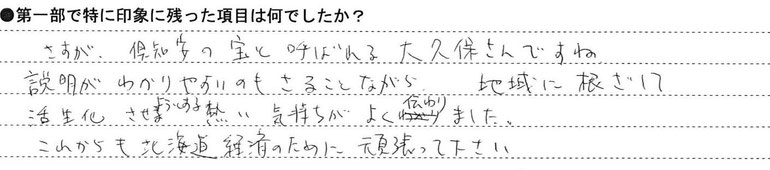 ●第一部で特に印象に残った項目は何でしたか？
さすが、倶知安の宝と呼ばれる大久保さんですね
説明がわかりやすいのもさることながら、地域に根ざして
活生化させようとする熱い気持ちがよく伝わりました。
これからも北海道経済のために頑張って下さい